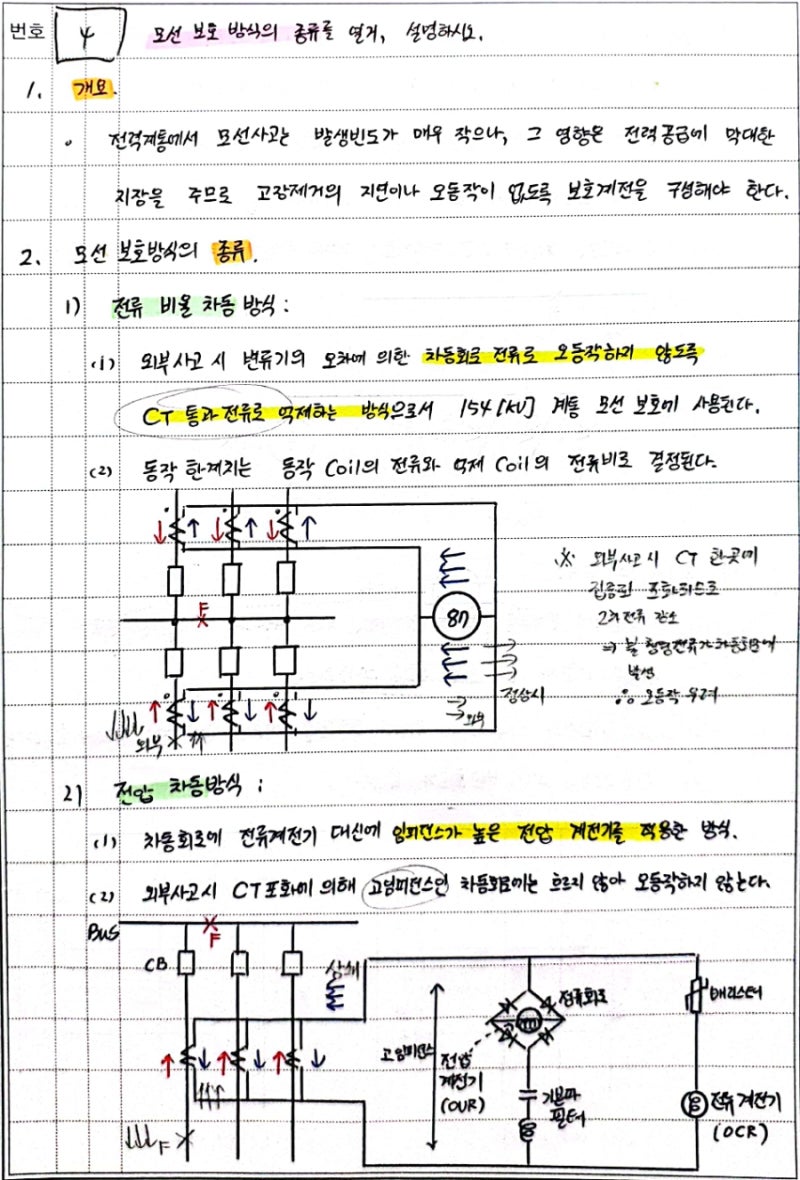 번호 4 모선 보호 방식의 종류를 열거, 설명하시오.
1. 개요.
• 전력계통에서 모선사고는 발생빈도가 매우 작으나, 그 영향은 전력공급에 막대한
지장을 주므로 고장제거의 지연이나 오동작이 없도록 보호계전을 구성해야 한다.
2. 모선 보호방식의 종류.
1) 전류 비율 차동 방식 :
(1) 외부사고 시 변류기의 오차에 의한 차동회로 전류로 오동작하지 않도록
CT 통과전류로 억제하는 방식으로서 154[kV] 계통 모선 보호에 사용된다.
(2) 동작 한계치는 동작 Coil의 전류와 억제 Coil의 전류비로 결정된다.
F
87
정상시
외부
외부
※ 외부사고 시 CT 한곳에
집중되 포화되므로
2차전류 감소
⇒ 불평형전류가 차동회로에
발생
∴ 오동작 우려
2) 전압 차동방식 :
(1) 차동회로에 전류계전기 대신에 임피던스가 높은 전압 계전기를 적용한 방식.
(2) 외부사고시 CT포화에 의해 고임피던스인 차동회로에는 흐르지 않아 오동작하지 않는다.
BUS
F
CB
상쇄
고임피던스
전압
계전기
(OVR)
정류회로
기본파
필터
배리스터
전류계전기
(OCR)
F